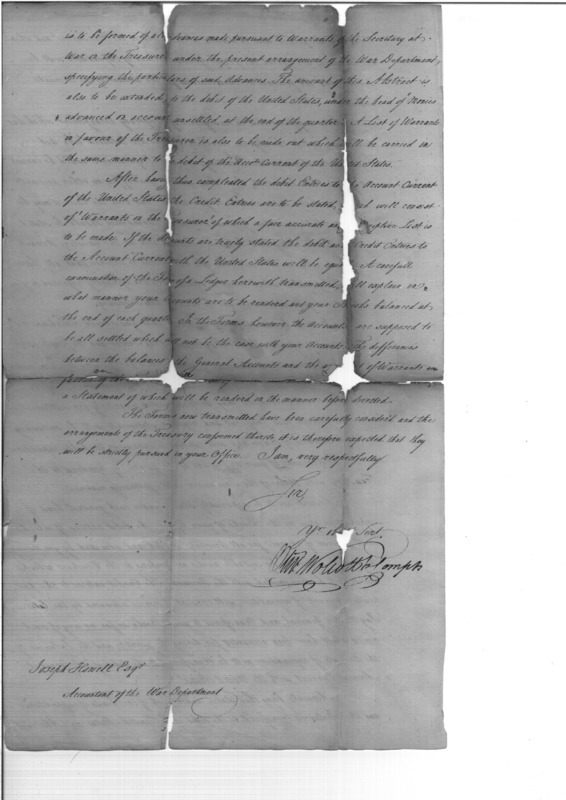 is to be formed of all advances made pursuant to Warrants of the Secretary at
War or the Treasurer under the present arrangement of the War Department,
specifying the particulars of such advances. The amount of this Abstract is
also to be extended to the debit of the United States, under the head of Monies
advanced on account unsettled, at the end of the quarter. A List of Warrants
in favour of the Treasurer is also to be made out which will be carried in
the same manner to debit of the Acct Current of the United States.
After having thus compleated the debit Entries to the Account Current
of the United States the Credit Entries are to be stated, will consist
of Warrants on the Treasurer of which a fair accurate and descriptive List is
to be made. If the Accounts are truely stated the debit and Credit Entries to
the Account Current with the United States will be equal. A carefull
examination of the Form of a Ledger herewith transmitted, will explain in
what manner your Accounts are to be rendered and your Books balanced at
the end of each quarter. In the Forms however the accounts are supposed to
be all settled which will not be the case with your Accounts. The difference
between the balances the General Accounts and the of Warrants on
a Statement of which will be rendered in the manner before directed.
The Forms now transmitted have been carefully considered and the
arrangements of the Treasury conformed thereto, it is therefore expected that they
will be strictly pursued in your Office. I am, very respectfully
Sir,
Yr Servt.
Oliv. Wolcott Jr Compt
Joseph Howell Esqr
Accountant of the War Department